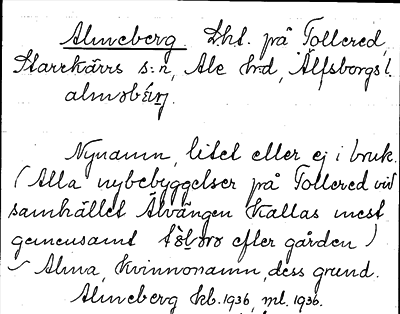 Almeberg Lht. på Tollered,
Starrkärrs s:n, Ale hd, Älfsborgs l.
alməbǽrj.
Nynamn, litet eller ej i bruk.
(Alla nybebyggelser på Tollered vid
samhället Älvängen kallas mest
gemensamt efter gården)
Alma, kvinnonamn, dess grund.
Almeberg kb. 1936, ml. 1936.